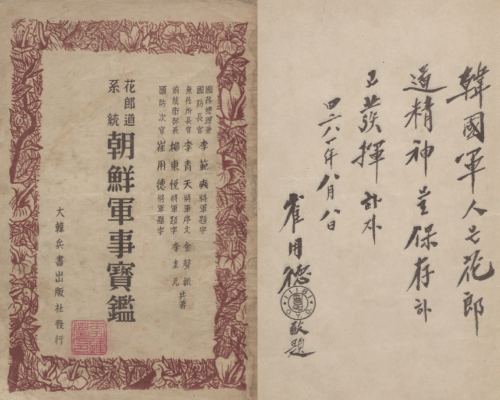 國務總理兼
國防長官 李範奭 將軍題字
無任所長官 李靑天 將軍序文
前統衛部長 柳東悅 將軍題字
國防次官 崔用德 將軍題字
共著
花郎道
系統
朝鮮軍事寶鑑
大韓兵書出版社發行
韓國軍人은 花郎
道精神을 保存하
고 發揮하자
四二八一年八月八日
崔用德 敬題